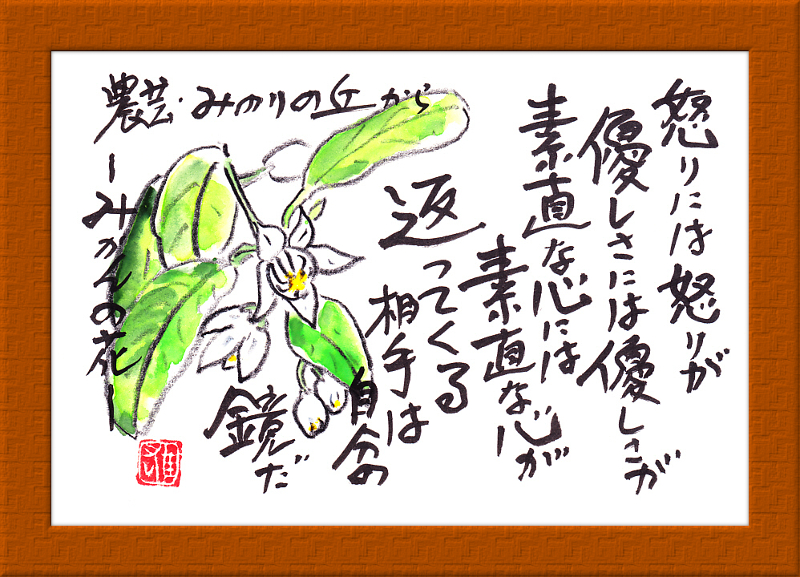 怒りには怒りが
優しさには優しさが
素直な心には
素直な心が
返ってくる
相手は
自分の
鏡だ
農芸・みのりの丘から
ーみかんの花ー